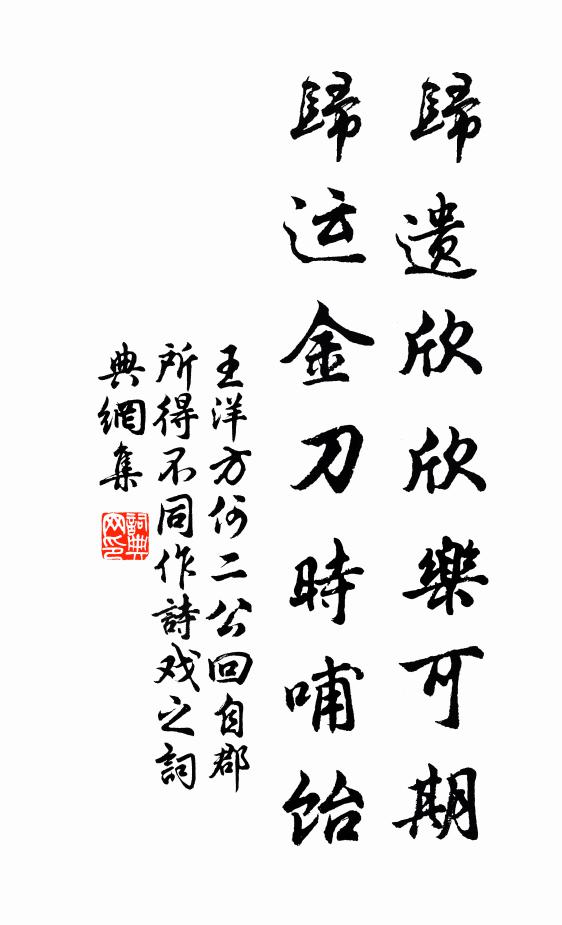 歸遺欣欣樂可期
歸运金刀時哺飴
王洋方何二公回自郡
所得不同作詩戏之詞
典網集
詞典網印